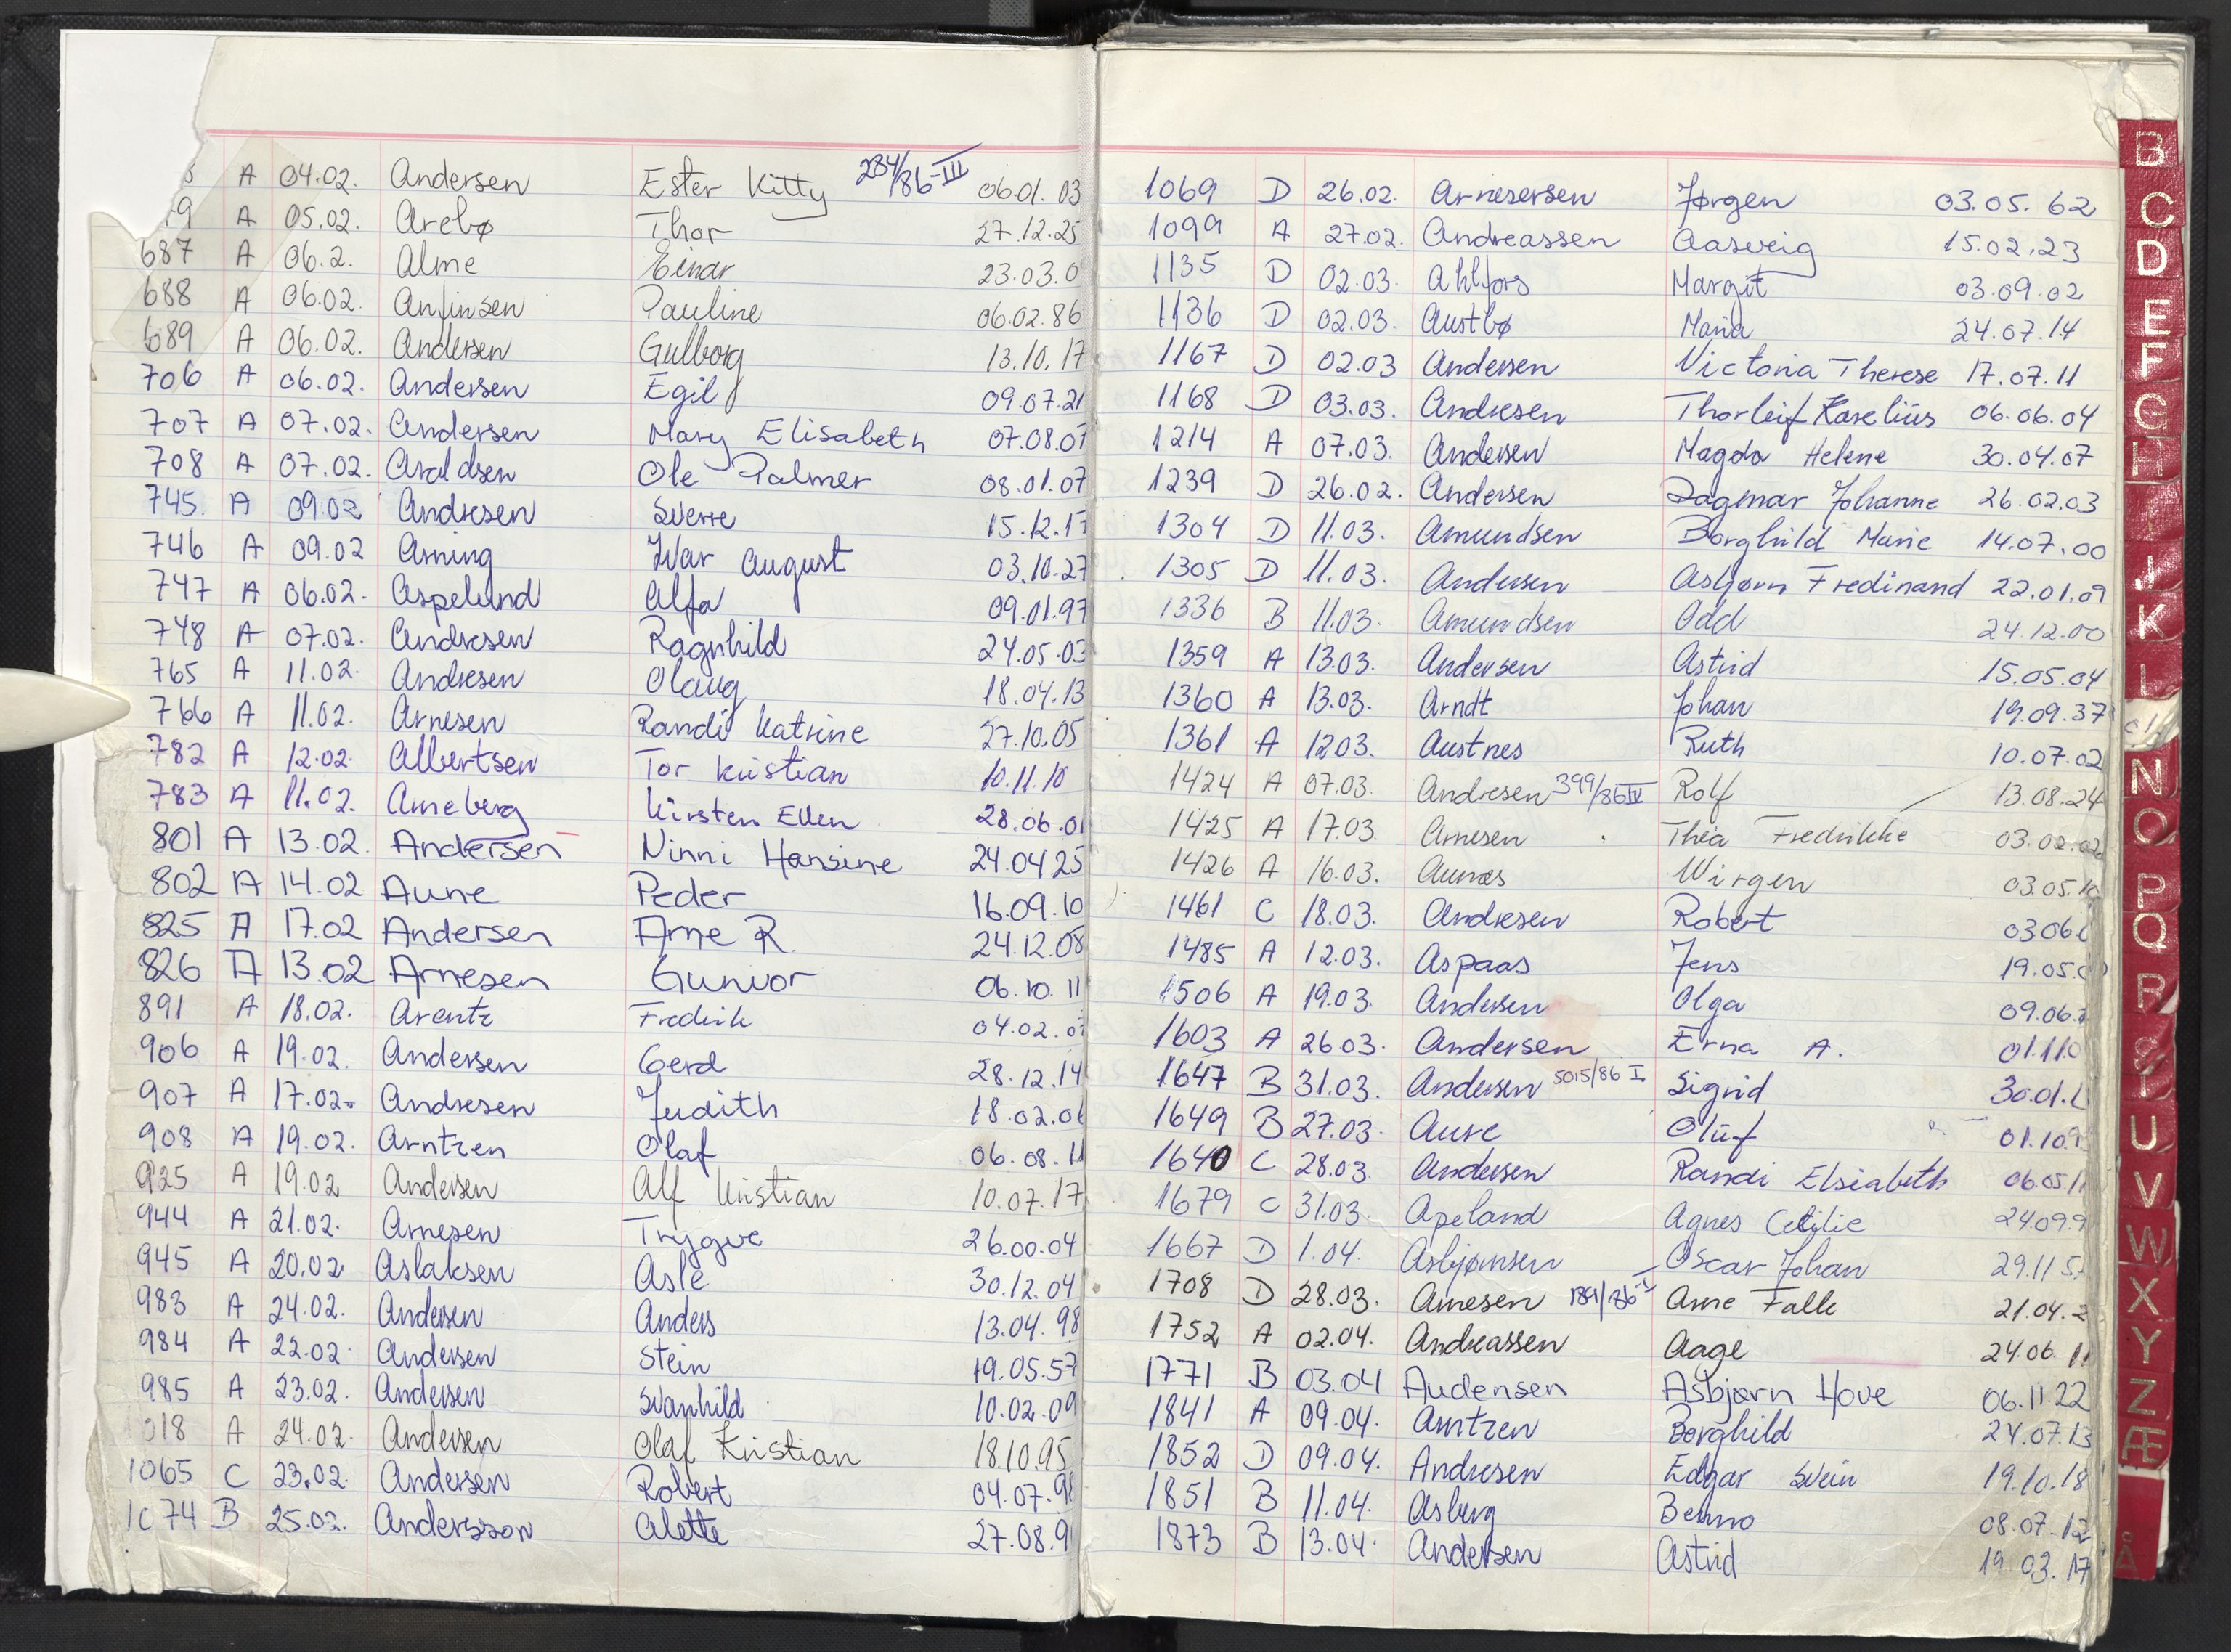 A 04.02. Andersen Ester Kitty 284/86-III 06.01.03
A 05.02. Arebø Thor 27.12.25
687 A 06.2. Alme Einar 23.03.0
688 A 06.02. Anfinsen Pauline 06.02.86
689 A 06.02. Andersen Gulborg 13.10.17
706 A 06.02. Andersen Egil 09.07.21
707 A 07.02. Andersen Mary Elisabeth 07.08.07
708 A 07.02. Araldsen Ole Palmer 08.01.07
745. A 09.02 Andresen Sverre 15.12.17
746 A 09.02 Arning Ivar August 03.10.27
747 A 06.02. Aspelund Alfa 09.01.97
748 A 07.02. Andresen Ragnhild 24.05.03
765 A 11.02. Andresen Olaug 18.04.13
766 A 11.02. Arnesen Randi Katrine 27.10.05
782 A 12.02. Albertsen Tor Kristian 10.11.10
783 A 11.02. Arneberg Kirsten Ellen 28.06.01
801 A 13.02. Andersen Ninni Hansine 24.04 25
802 A 14.02 Aune Peder 16.09.10
825 A 17.02 Andersen Arne R. 24.12.08
826 A 13.02 Arnesen Gunvor 06.10.11
891 A 18.02. Arentz Fredrik 04.02.0
906 A 19.02. Andersen Gerd 28.12.14
907 A 17.02. Andresen Judith 18.02.06
908 A 19.02. Arntzen Olaf 06.08.11
925 A 19.02 Andersen Alf Kristian 10.07.17
944 A 21.02. Arnesen Trygve 26.00.04
945 A 20.02 Aslaksen Asle 30.12.04
983 A 24.02. Andersen Anders 13.04.98
984 A 22.02. Andersen Stein 19.05.57
985 A 23.02. Andersen Svanhild 10.02.09
1018 A 24.02. Andersen Olaf Kristian 18.10.95
1065 C 23.02. Andersen Robert 04.07.98
1074 B 25.02. Andersson Alette 27.08.9
1069 D 26.02. Arnesersen Jørgen 03.05.62
1099 A 27.02. Andreassen Aasveig 15.02.23
1135 D 02.03. Ahlfors Margit 03.09.02
1136 D 02.03. Austbø Maria 24.07.14
1167 D 02.03 Andersen Victoria Therese 17.07.11
1168 D 03.03. Andresen Thorleif Karelius 06.06.04
1214 A 07.03. Andersen Magda Helene 30.04.07
1239 D 26.02. Andersen Dagmar Johanne 26.02.03
1304 D 11.03. Amundsen Borghild Marie 14.07.00
1305 D 11.03. Andersen Asbjørn Fredinand 22.01.09
1336 B 11.03. Amundsen Odd 24.12.00
1359 A 13.03. Andersen Astrid 15.05.04
1360 A 13.03. Arndt Johan 19.09.37
1361 A 12.03. Austnes Ruth 10.07.02
1424 A 07.03. Andresen 399/86 IV Rolf 13.08.24
1425 A 17.03 Arnesen Thea Fredrikke 03.02.02
1426 A 16.03. Aunæs Wirgen 03.05.1
1461 C 18.03. Andresen Robert 03.06.
1485 A 12.03. Aspaas Jens 19.05.0
1506 A 19.03. Andersen Olga 09.06.
1603 A 26.03. Andersen Erna A. 01.11.0
1647 B 31.03. Andersen 5015/86 I Sigrid 30.01.
1649 B 27.03. Aure Oluf 01.10.9
1640 C 28.03. Andersen Randi Elsiabeth 06.05.11
1679 C 31.03. Apeland Agnes Cecilie 24.09.9
1667 D 1.04. Asbjørnsen Oscar Johan 29.11 5
1708 D 28.03. Arnesen Arne Falle 21.04.2
1752 A 02.04. Andreassen Aage 24.06.11
1771 B 03.04 Audensen Asbjørn Hove 06.11.22
1841 A 09.04. Arntzen Borghild 24.07.13
1852 D 09.04. Andresen Edgar Svein 19.10.18
1851 B 11.04. Asberg Benno 08.07.12
1873 B 13.04. Andersen Astrid 19.03.17
B
C
D
E
F
G
H
J
K
L
N
O
P
Q
R
S
U
V
W
X
Y
Z
Æ
Å